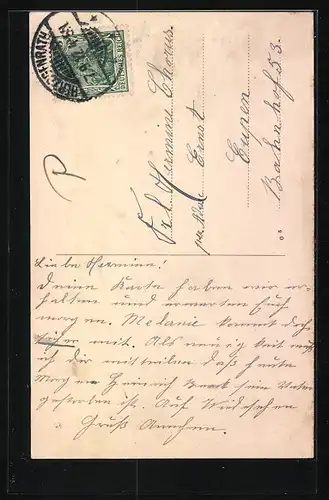 HERZOGENRATH
DEUTSCHES REICH
Frl. Hermine Thomas
per Adr. Ernst
Eupen
Bahnhof 53.
Liebe Hermine!
Deine Karte haben wir er-
halten und erwarten Euch
morgen. Melanie kommt doch
sicher mit. Als neuigkeit muß
ich dir mitteilen daß heute
Morgen Heinrich sein Vater
gestorben ist. Auf Wiedsehen
Gruß Annchen.